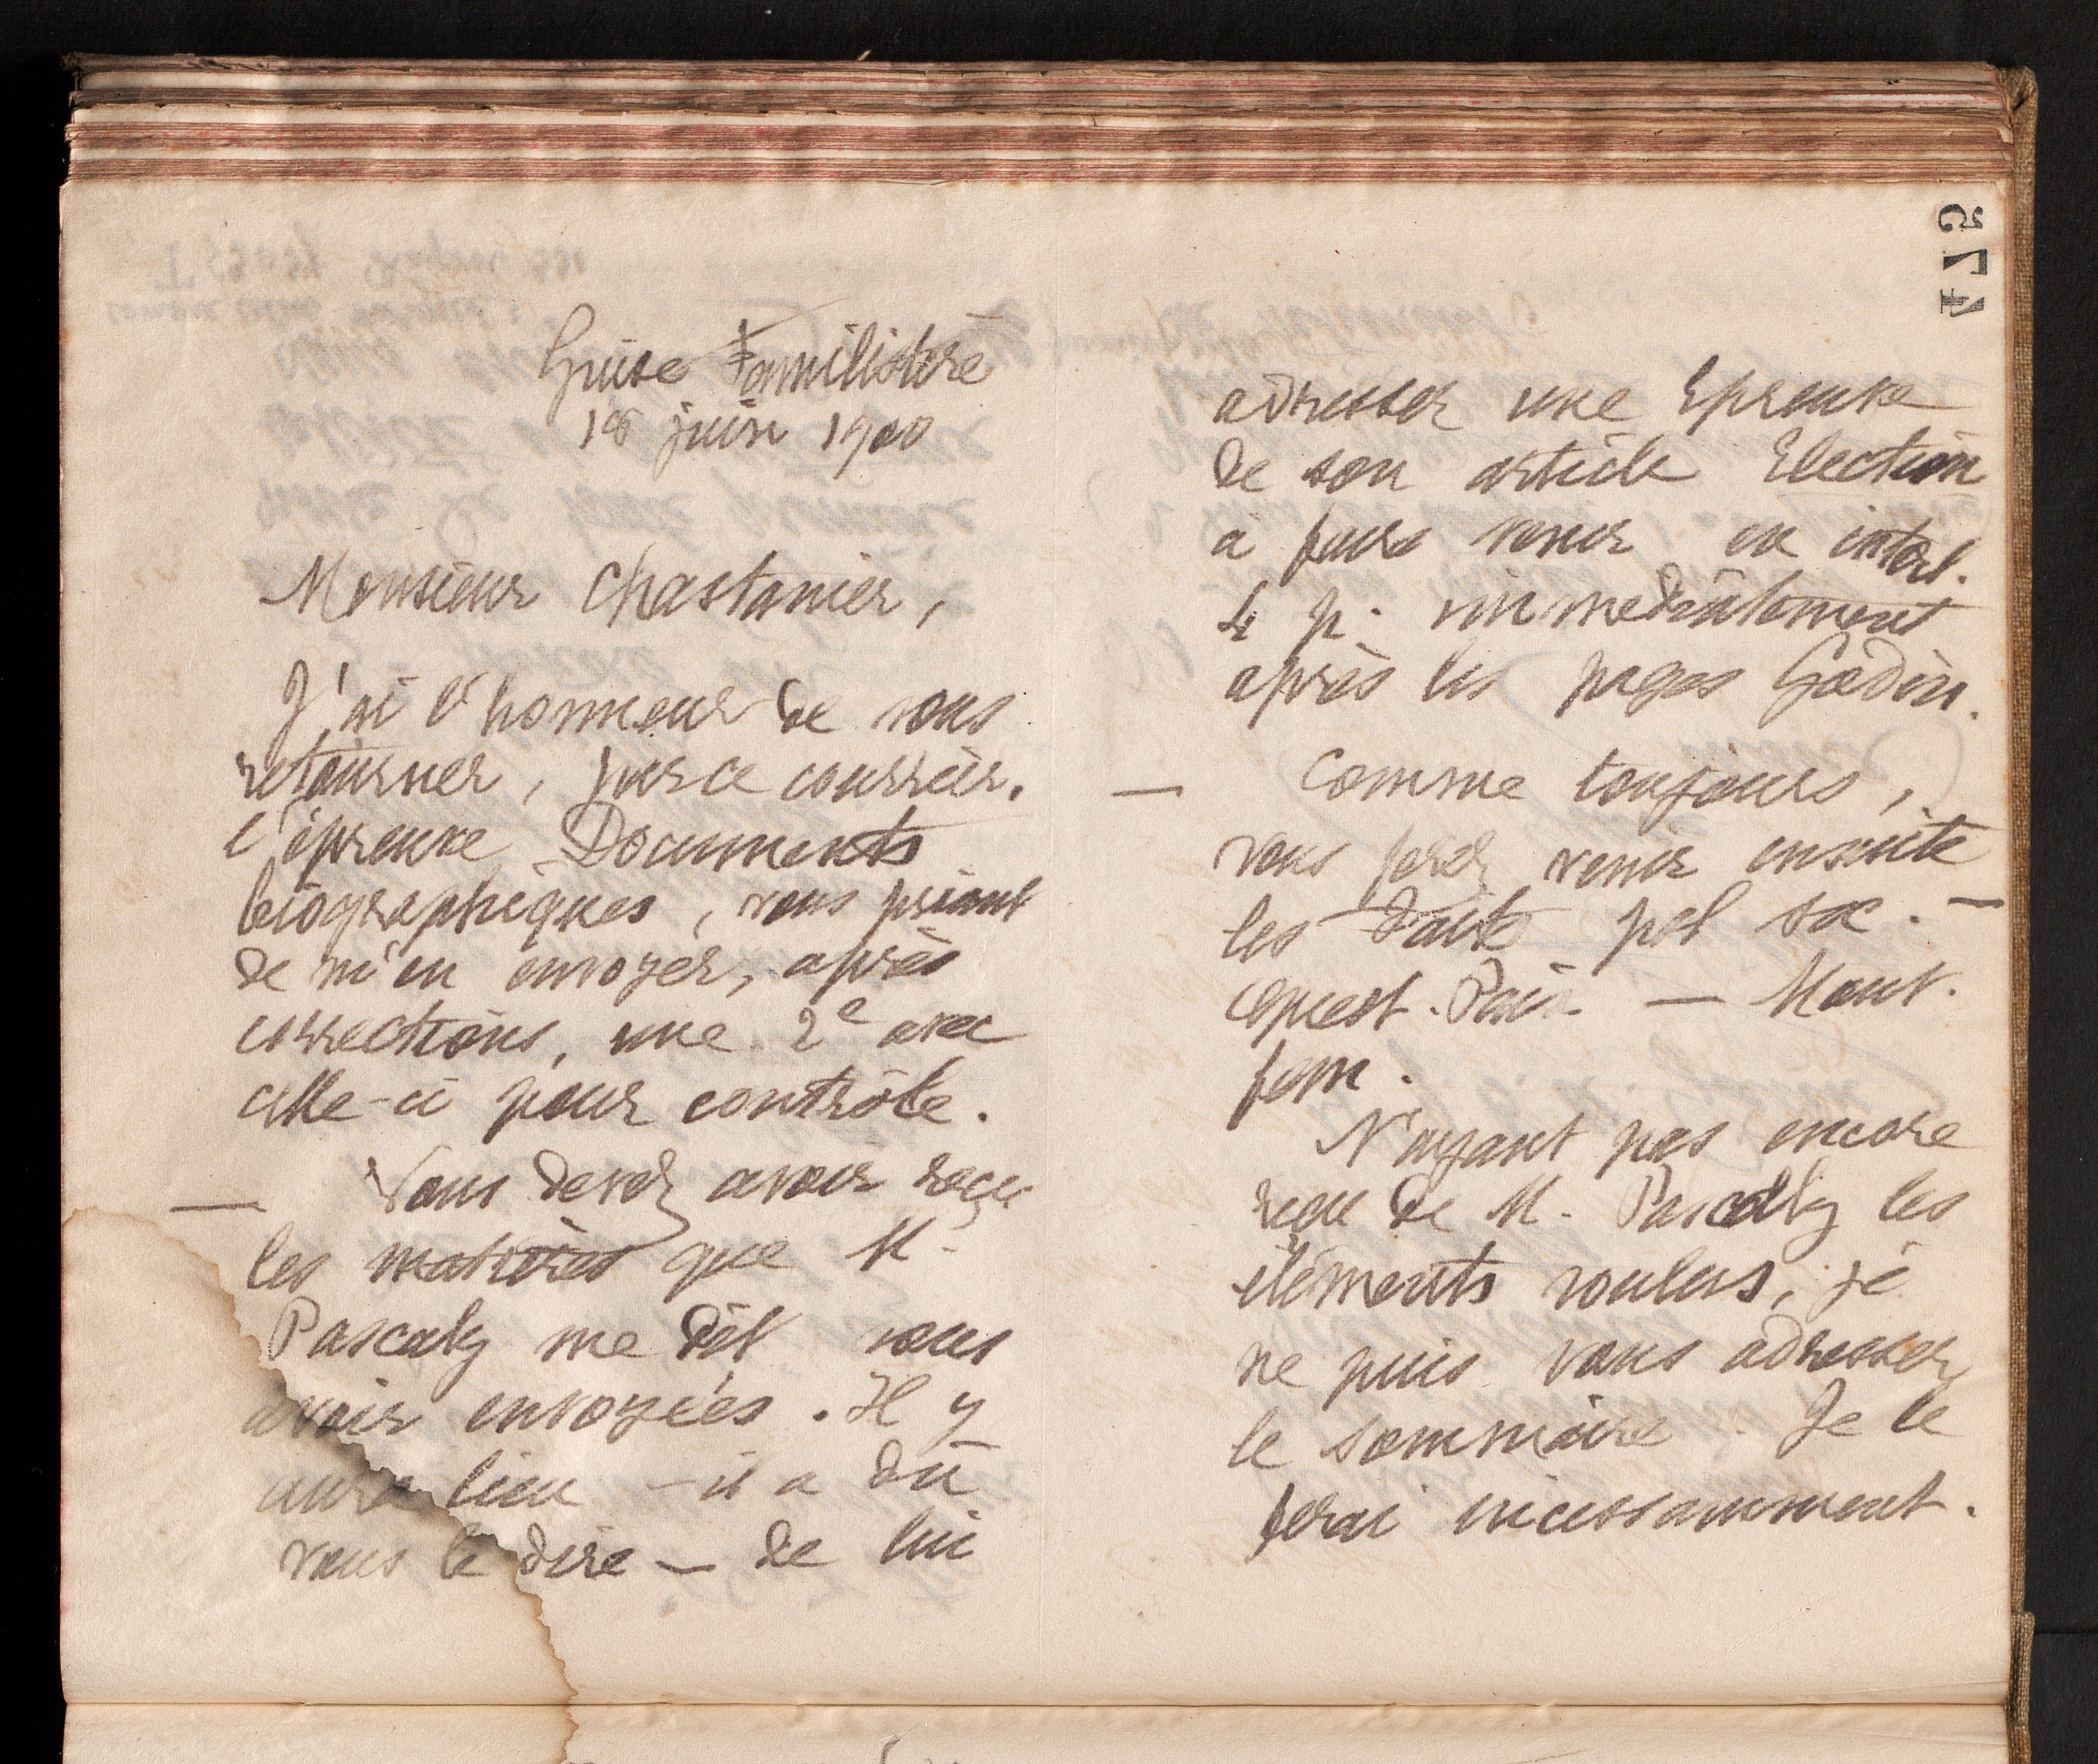 Guise Familistère
18 juin 1900
Monsieur Chastanier,
J'ai l'honneur de vous
retourner, par ce courrier,
l'épreuve Documents
biographiques, vous priant
de m'en envoyer, après
corrections, une 2e avec
celle-ci pour contrôle.
— Vous devez avoir reçu
les matières que M.
Pascaly me dit vous
avoir envoyées. Il y
aura lieu — il a dû
vous le dire — de lui
574
adresser une épreuve
de son article Election
à faire venir en interl.
4 p. immédiatement
après les pages Godin.
— Comme toujours,
vous ferez venir ensuite
les Faits pol soc. —
Quest. Paix — Mouv.
fem.
N'ayant pas encore
reçu de M. Pascally les
éléments voulus, je
ne puis vous adresser
le sommaire. Je le
ferai incessamment.